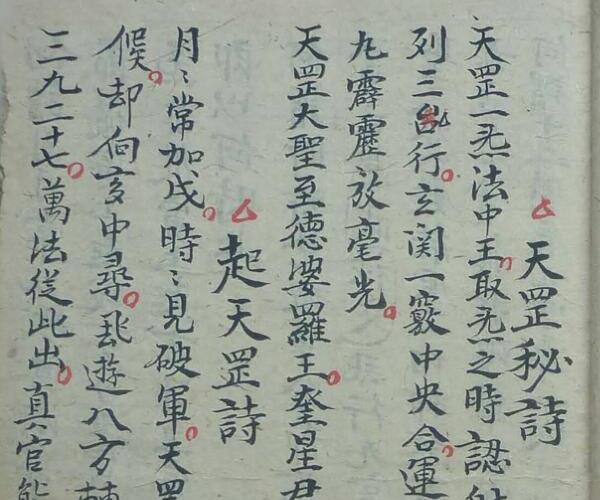 天罡秘詩
天罡一炁法中王取炁之時認
列三台行玄関一竅中央合運
九霹靂放毫光
天罡大聖至德婆羅王奎星君
起天罡詩
月〻常加戌時〻見破軍天罡
候却向亥中尋遊八方
三九二十七萬法從此出真官能